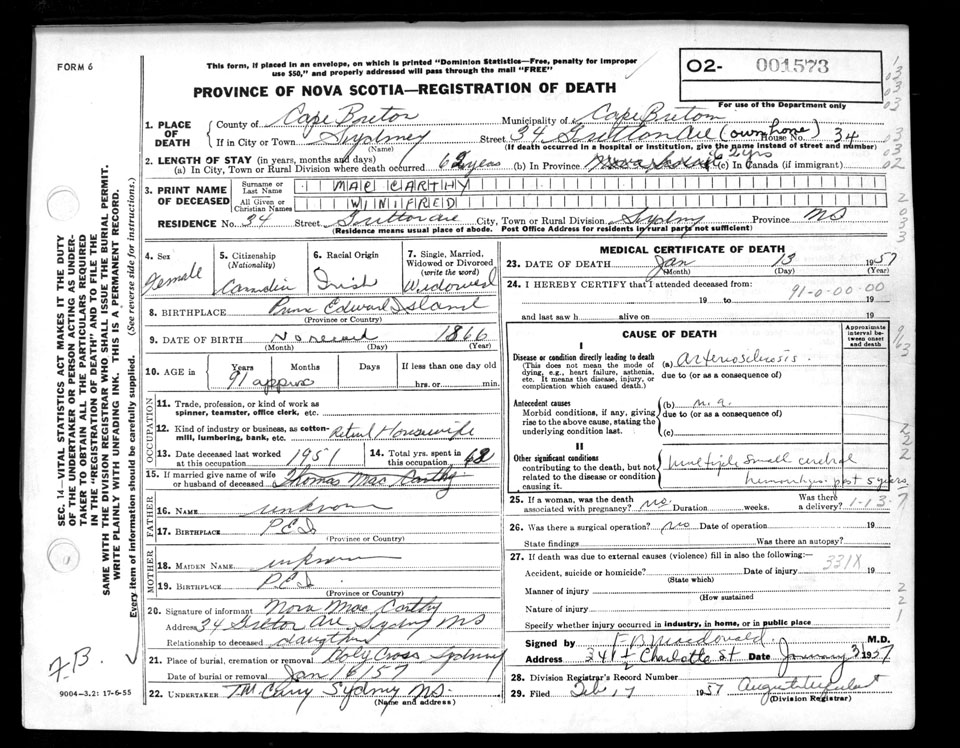 FORM 6
This form, if placed in an envelope, on which is printed "Dominion Statistics—Free, penalty for improper
use $50," and properly addressed will pass through the mail "FREE"
O2- 001573
For use of the Department only
PROVINCE OF NOVA SCOTIA—REGISTRATION OF DEATH
1. PLACE OF DEATH
County of Cape Breton Municipality of Cape Breton
If in City or Town Sydney Street 34 Ave (own home) House No. 34
(Name) (If death occurred in a hospital or institution, give the name instead of street and number)
2. LENGTH OF STAY (in years, months and days)
(a) In City, Town or Rural Division where death occurred 62 years (b) In Province 62 yrs (c) In Canada (if immigrant)
3. PRINT NAME OF DECEASED
Surname or Last Name MAC CARTHY
All Given or Christian Names WINIFRED
RESIDENCE No. 34 Street Ave City, Town or Rural Division Sydney Province NS
(Residence means usual place of abode. Post Office Address for residents in rural parts not sufficient)
4. Sex Female
5. Citizenship (Nationality)
6. Racial Origin Irish
7. Single, Married, Widowed or Divorced (write the word) Widowed
8. BIRTHPLACE Prince Edward Island
(Province or Country)
9. DATE OF BIRTH No record 1866
(Month) (Day) (Year)
10. AGE in Years Months Days If less than one day old
91 approx hrs. or min.
OCCUPATION
11. Trade, profession, or kind of work as
spinner, teamster, office clerk, etc.
12. Kind of industry or business, as cotton-
mill, lumbering, bank, etc. Retired Housewife
13. Date deceased last worked at this occupation 1951
14. Total yrs. spent in this occupation 68
15. If married give name of wife or husband of deceased Thomas Mac Carthy
FATHER
16. NAME unknown
17. BIRTHPLACE P.E.I.
(Province or Country)
MOTHER
18. MAIDEN NAME unknown
19. BIRTHPLACE P.E.I.
(Province or Country)
20. Signature of informant Nora Mac Carthy
Address 34 Ave Sydney NS
Relationship to deceased daughter
21. Place of burial, cremation or removal Holy Cross Sydney
Date of burial or removal Jan 16/57
22. UNDERTAKER T.M. Curry Sydney NS.
(Name and address)
MEDICAL CERTIFICATE OF DEATH
23. DATE OF DEATH Jan 13 1957
(Month) (Day) (Year)
24. I HEREBY CERTIFY that I attended deceased from:
91-0-00-00
19 to 19
and last saw h alive on 19
CAUSE OF DEATH
Approximate interval between onset and death
I
Disease or condition directly leading to death
(This does not mean the mode of
dying, e.g., heart failure, asthenia,
etc. It means the disease, injury, or
complication which caused death.)
(a) arteriosclerosis.
due to (or as a consequence of)
Antecedent causes
Morbid conditions, if any, giving
rise to the above cause, stating the
underlying condition last.
(b) n.a.
due to (or as a consequence of)
(c)
II
Other significant conditions
contributing to the death, but not
related to the disease or condition
causing it.
multiple small cerebral
hemorrhages past 5 years
25. If a woman, was the death associated with pregnancy? no. Duration weeks. Was there a delivery? 1-13-7
26. Was there a surgical operation? no Date of operation 19
State findings Was there an autopsy?
27. If death was due to external causes (violence) fill in also the following:—
Accident, suicide or homicide? Date of injury 331X 19
(State which)
Manner of injury
(How sustained
Nature of injury
Specify whether injury occurred in industry, in home, or in public place
Signed by F B Macdonald M.D.
Address 341½ Charlotte St Date January 1957
28. Division Registrar's Record Number
29. Filed Feb 17 1957
(Division Registrar)
SEC. 14—VITAL STATISTICS ACT MAKES IT THE DUTY
OF THE UNDERTAKER OR PERSON ACTING AS UNDER-
TAKER TO OBTAIN ALL THE PARTICULARS REQUIRED
IN THE "REGISTRATION OF DEATH" AND TO FILE THE
SAME WITH THE DIVISION REGISTRAR WHO SHALL ISSUE THE BURIAL PERMIT.
WRITE PLAINLY WITH UNFADING INK. THIS IS A PERMANENT RECORD.
Every item of information should be carefully supplied. (See reverse side for instructions.)
F.B.
9004-3.2: 17-6-55